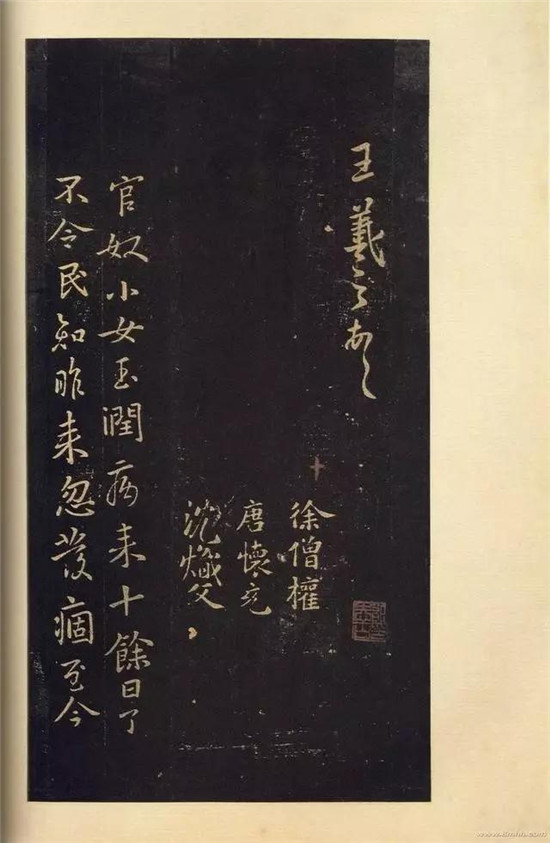 王羲之頓
徐僧權
唐懷充
沈熾文
官奴小女玉潤病来十餘日了
不令民知昨来忽發痼至今